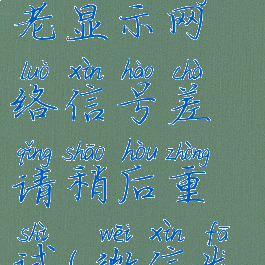 老显示网
luò xìn hào chà
络信号差
qǐng shāo hòu zhòng
请稍后重
shì wēi xìn fā
试(微信发